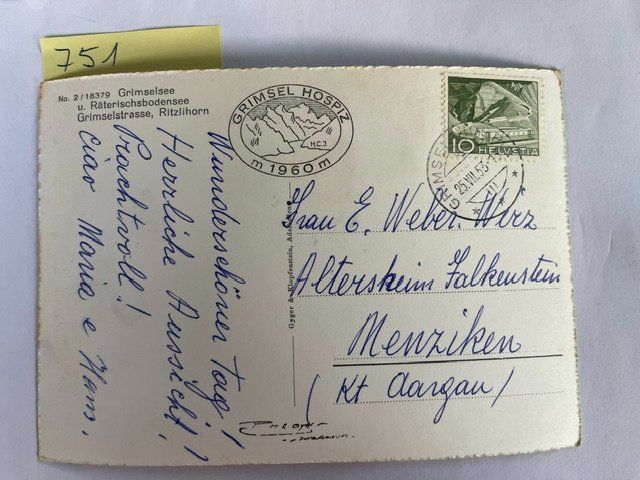 751
No. 2/18379 Grimselsee
u. Räterischsbodensee
Grimselstrasse, Ritzlihorn
GRIMSEL HOSPIZ
H.C.J.
m 1960 m
10 HELVETIA
GRIMSEL
25.VII.53
Wunderschöner Tag!
Herrliche Aussicht,
Prachtvoll!
Ciao Maria e Hans.
Gyger & Klopfenstein, Adelboden
Frau E. Weber-Wirz
Altersheim Falkenstein
Menziken
(Kt Aargau)